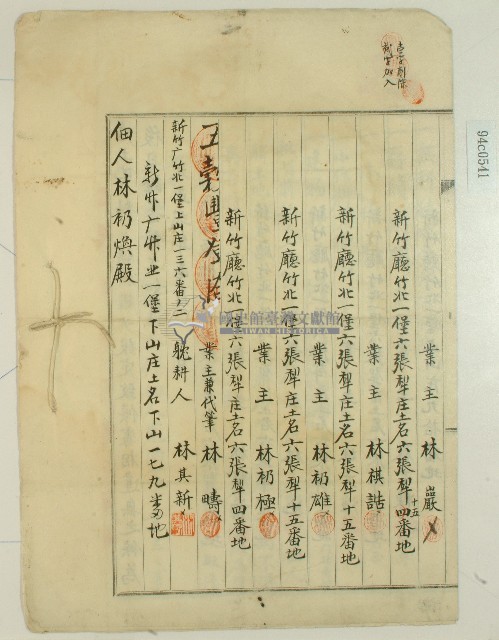 壹字刪除
貳字加入
業主 林 巖
新竹廳竹北一堡六張犁庄土名六張犁四番地
十五
業主 林祺誥
新竹廳竹北一堡六張犁庄土名六張犁十五番地
業主 林礽雄
新竹廳竹北一堡六張犁庄土名六張犁十五番地
業主 林礽極
新竹廳竹北一堡六張犁庄土名六張犁四番地
業主兼代筆 林 疇
新竹廳竹北一堡上山庄一三六番ノ二
耕人 林其新
新竹廳竹北一堡下山庄土名下山一七九番地
佃人林礽煥殿
國史館臺灣文獻館
TAIWAN HISTORICA
94c0541